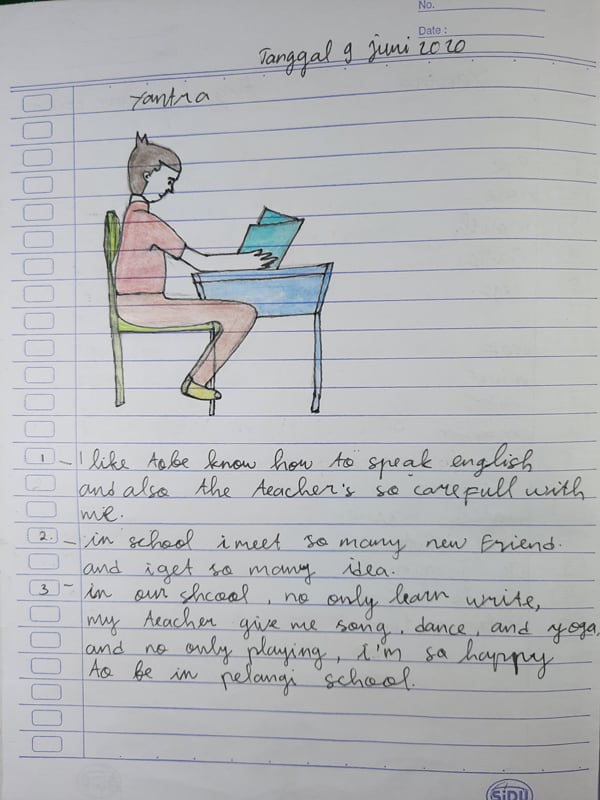 No.
Date :
Tanggal 9 juni 2020
Yantra
1 - I like tobe know how to speak english
and also the teacher's so carefull with
me.
2. - in school i meet so many new Friend.
and i get so many idea.
3 - in our shcool, no only learn write,
my teacher give me song, dance, and yoga,
and no only playing, i'm so happy
to be in pelangi school.
SiDU